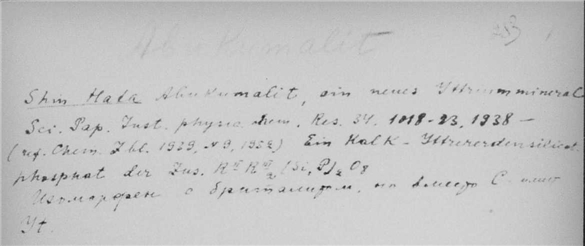 Abukumalit
Shin Hata Abukumalit, ein neues Yttriummineral
Sci. Pap. Inst. physic. chem. Res. 34. 1018-23, 1938 –
(ref. Chem. Zbl. 1939, N9, ) Ein Kalk-Yttererdensilicat
phosphat der Zus. (Si, P)₂ O₈
Изоморфен с бритолитом, но вместо
Yt.